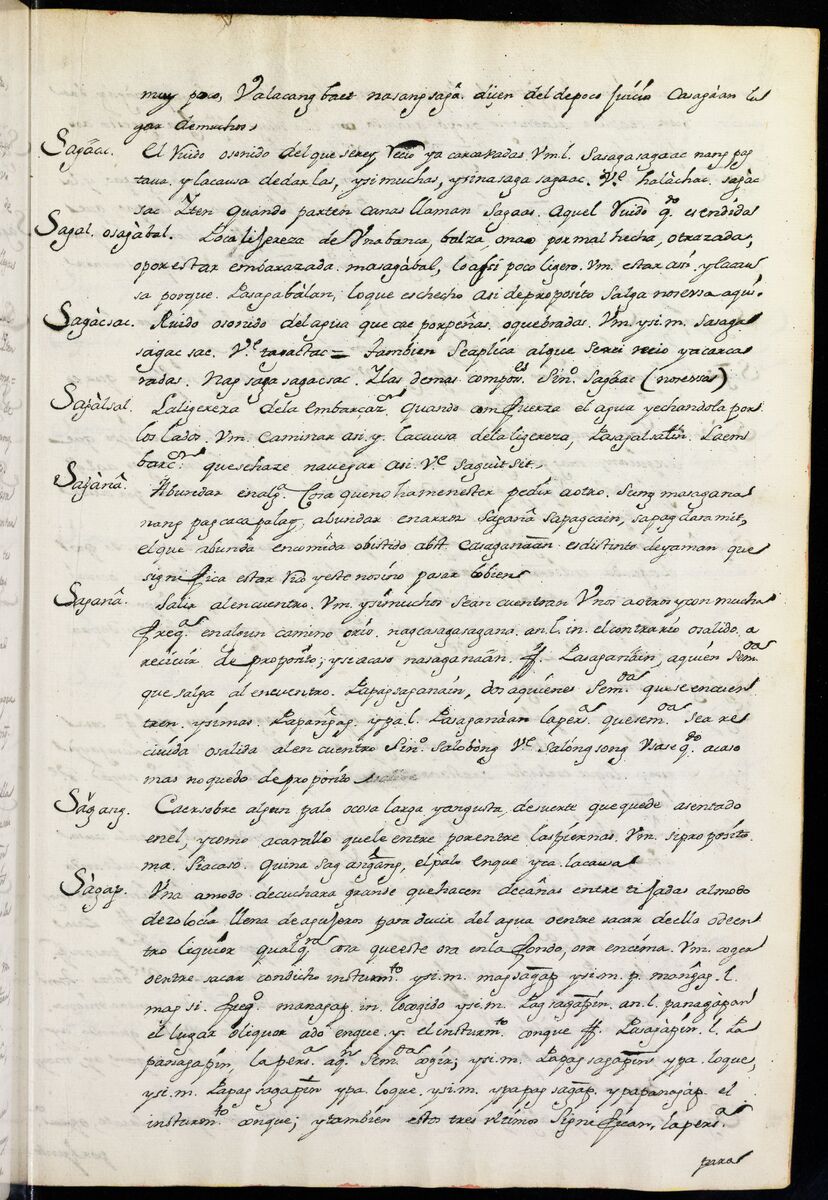 muy poco, Valacang baet nasang sagà. dizen del depoco Juicio Casagàan lu
gar demuchos
Sagáac. El Ruido osonido del que serey, Recio ya carcaxadas. Vm. l. Sasagasagaac nang pag
taua. y lacausa dedarlas, ysi muchas, ysinasaga sagaac. V.e halàchac. sagàc
sac Yten Quando parten canas llaman Sagaac. Aquel Ruido q.do es endida
Sagal. osagàbal. Poca lijereza de Vnabanca, balza, ona o por mal hecha, otrazada,
opor estar embarazada. masagàbal, lo assi poco ligero. Vm. estar asi. y lacau
sa porque. Pasagabàlan, loque es hecho asi deproposito Salga noressa aqui.
Sagàcsac. Ruido osonido delagua que cae porpeñas. oquebradas. Vm ysi.m. Sasaga
sagac sac. V.e ragactac = tambien seaplica alque serei recio yacarca
xadas. Nag saga sagacsac. Ylas demas compos.es Sin.o Sagáac (noressa)
Sagàlsal. Laligereza dela embarcaz.n Quando com fuerza el agua yechandola por
los lados. Vm. caminar asi. y. lacausa dela ligereza, Pasagalsalin. Laem
barc.n que sehaze navegar asi. V.e saguitsit.
Sagànà. Abundar enalg.a Cosa queno hamenester pedir aotro. Sung masagana
nang pagcacapalag, abundar enarroz Sagana sapagcain, sapagdaramit,
el que abunda encomida obistido abt. Casaganáan es distinto deyaman que
significa estar rico yeste nosino pasar lobien
Saganà. Salir alencuentro. Vm. ysimuchos Sean cuentran Vnos aotros ycon mucha
freq.a enalgun camino orio. nagcasagasagana. an. l. in. el contrario osalido. a
recivir de proposito; ysi acaso nasaganáan. ff. Pasaganáin, aquien sem.da
que salga al encuentro. Papagsaganáin, dos aquienes sem.da que se encuen
tren. ysimas. Papangag. ypa. l. Pasaganáan laper.a quesem.da sea re
civida osalida alencuentro Sin.o Salobòng V.e Salóngsong Vsase q.do acaso
mas noquedo deproposito
Ságang. Caersobre algun palo ocosa larga yangusta, desuerte que quede asentado
enel, ycomo acavallo quele entre por entre laspiernas. Vm. siproposito.
ma. siacaso. Quina sag angáng, elpalo enque yca. lacausa
Sàgap. Vna amodo decuchara grande quehacen decañas entre tijadas almodo
dezolocia llena deagujeros para ducir del agua o entre sacar deella odeen
tro liquior qualq.ra cosa queeste ora enla fondo, ora encima. Vm. coger
oentre sacar condicho insturm.to ysi.m. magsagap ysi.m. p. mangap. l.
mag si. freq.o managap. in. locogido ysi.m. Pagsagapin. an. l. panagàpan
el lugar oliquor adò enque. y. el insturm.to conque ff. Pasagàpin. l. Pa
panagapin, lapers.a aq.n sem.da cogir; ysi.m. Papag sagapin ypa. loque,
ysi.m. Papag sagapin ypa. loque, ysi.m. ypapag sagap. ypapanagap. el
insturm.to conque; ytambien estos tres vltimos significan, lapers.a
para